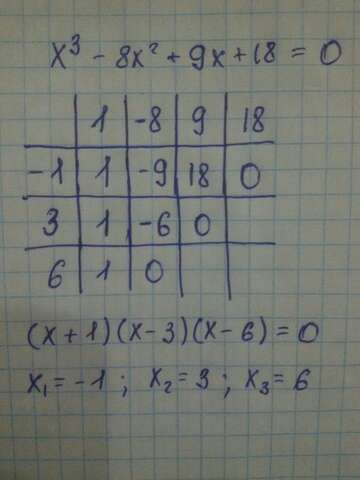 x³ - 8x² + 9x + 18 = 0
1 -8 9 18
-1 1 -9 18 0
3 1 -6 0
6 1 0
(x + 1)(x - 3)(x - 6) = 0
x₁ = -1 ; x₂ = 3 ; x₃ = 6